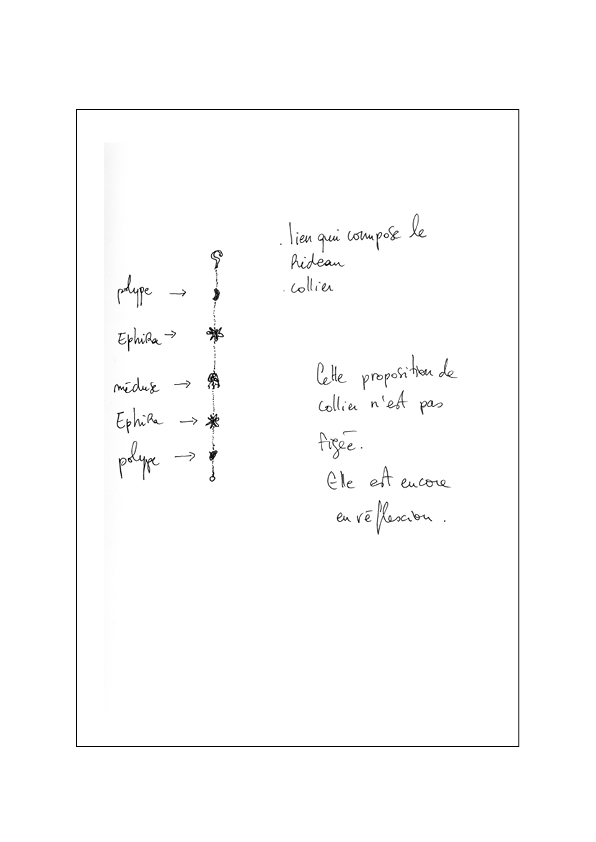 . lien qui compose le
Rideau
. collier
polype →
EphiRa →
méduse →
EphiRa →
polype →
Cette proposition de
collier n'est pas
figée.
Elle est encore
en réflexion.